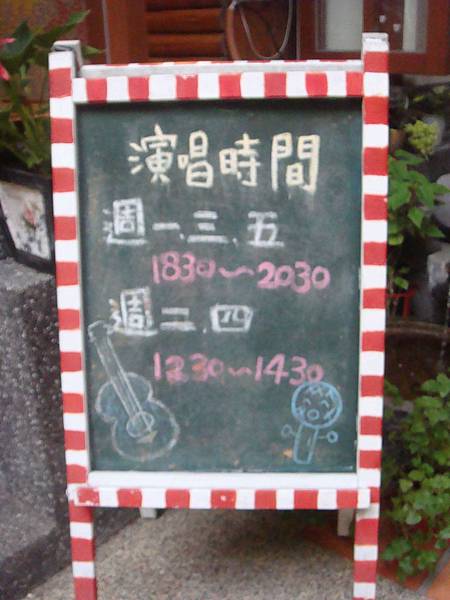 演唱時間
週一、三、五
1830~2030
週二、四
1230~1430